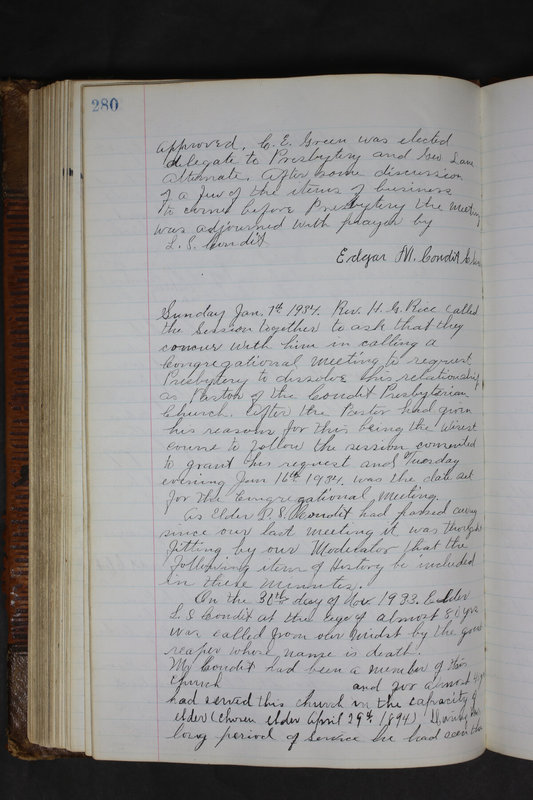 280
approved. C. E. Green was elected
delegate to Presbytery and Geo Lane
alternate. After some discussion
of a few of the items of business
to come before Presbytery the meeting
was adjourned with prayer by
L. S. Condit
Edgar M. Condit
Sunday Jan. 7th 1934. Rev. H. G. Rice called
the Session together to ask that they
concur with him in calling a
Congregational Meeting to request
Presbytery to dissolve his relationship
as Pastor of the Condit Presbyterian
Church. After the Pastor had given
his reasons for this being the wisest
course to follow the session consented
to grant his request and Tuesday
evening Jan 16th 1934. was the date set
for the Congregational Meeting.
As Elder L. S. Condit had passed away
since our last meeting it was thought
fitting by our Moderator that the
following item of History be included
in these Minutes.
On the 30th day of Nov. 1933. Elder
L. S Condit at the age of almost 80 yrs
was called from our midst by the great
reaper whose name is death.
Mr Condit had been a member of this
church and for almost
had served this church in the capacity of
elder (chosen elder April 29th 1894). During this
long period of service he had seen the